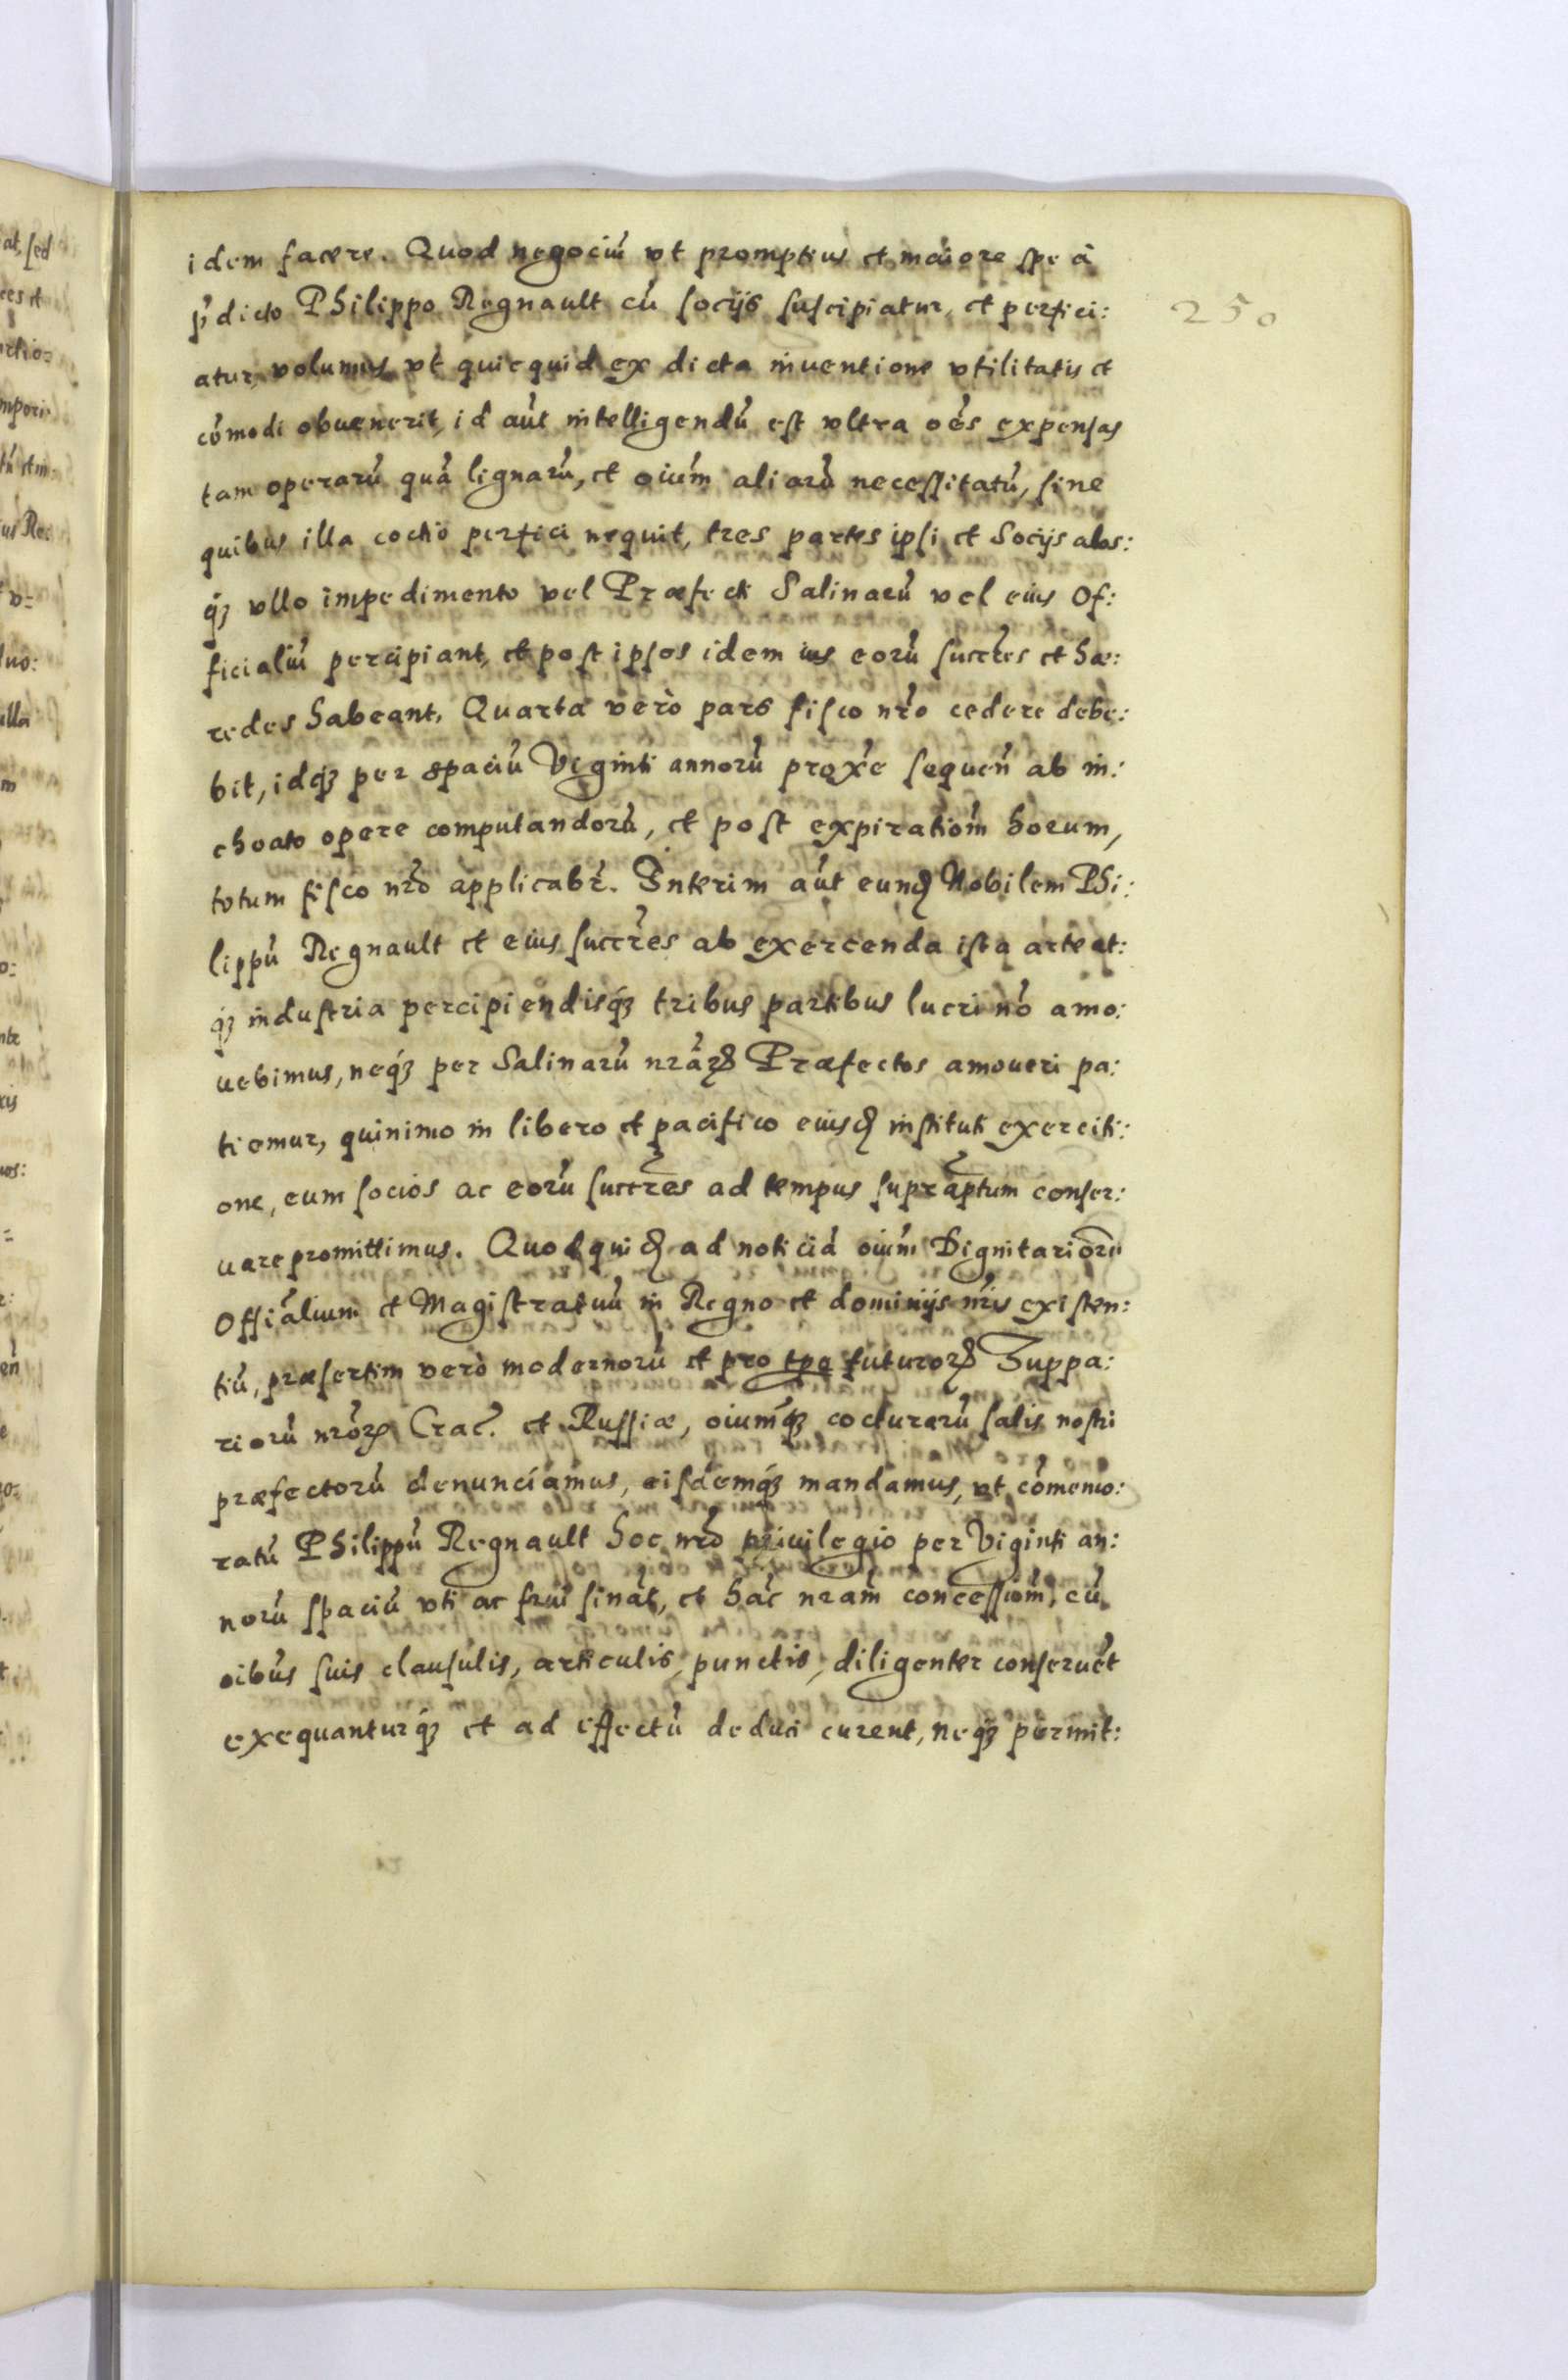 250
idem facere. Quod negociū vt promptius et maiore spe à
p̄dicto Philippo Regnault cū socijs suscipiatur, et perfici:
atur, volumus vt quicquid ex dicta inuentione vtilitatis et
cōmodi obuenerit, id aūt intelligendū est vltra oēs expensas
tam operarū quā lignarū, et oīum aliarū necessitatū, sine
quibus illa coctio perfici nequit, tres partes ipsi et Socijs abs:
q́ꝫ vllo impedimento vel Præfecti Salinarū vel eius Of:
ficialiū percipiant, et post ipsos idem ius eorū succr̄es et hæ:
redes habeant. Quarta verò pars fisco nr̄o cedere debe:
bit, idq́ꝫ per spaciū Viginti annorū prox̄e sequeñ ab in:
choato opere computandorū, et post expiratiōm horum,
totum fisco nr̄o applicabr̄. Interim aūt eund̄ Nobilem Phi:
lippū Regnault et eius succr̄es ab exercenda ista arte at:
q́ꝫ industria percipiendisq́ꝫ tribus partibus lucri nō amo:
uebimus, neq́ꝫ per Salinarū nr̄aꝝ Præfectos amoueri pa:
tiemur, quinimo in libero et pacifico eiusd̄ instituti exerciti:
one, eum socios ac eorū succr̄es ad tempus supraptum conser:
uare promittimus. Quod quid̄ ad noticiā oīum Dignitariorū
Offiālium et Magistratuū in Regno et dominijs nr̄is existen:
tiū, præsertim verò modernorū et pro tpe futuroꝝ Zuppa:
riorū nr̄oꝝ Crac̄. et Russiæ, oīumq́ꝫ cocturarū salis nostri
præfectorū denunciamus, eisdemq́ꝫ mandamus, vt cōmemo:
ratū Philippū Regnault hoc nr̄o priuilegio per Viginti an:
norū spaciū vti ac frui sināt, et hāc nr̄am concessiōm, cū
oibūs suis clausulis, articulis, punctis, diligenter conseruēt
exequanturq́ꝫ et ad effectū deduci curent, neq́ꝫ permit: